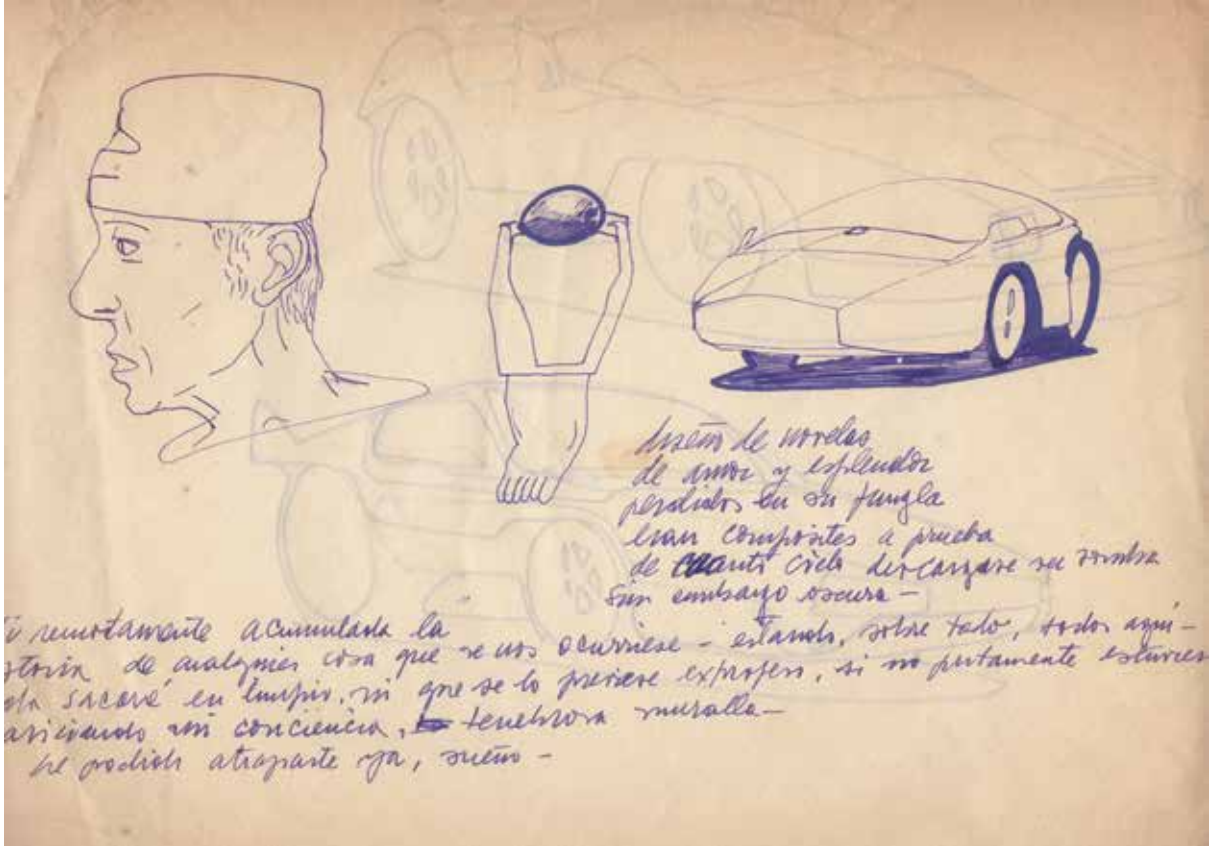 diseño de novelas
de amor y esplendor
perdidos en su jungla
eran composites a prueba
de cuanto cielo descargase su
sin embargo oscura —
remotamente acumulada la
de cualquier cosa que se nos ocurriese — estando, sobre todo, todos aquí —
sacaré en limpio, ni que se lo exprofeso, si no justamente
mi conciencia, tenebrosa muralla —
he podido atraparte ya, sueño —